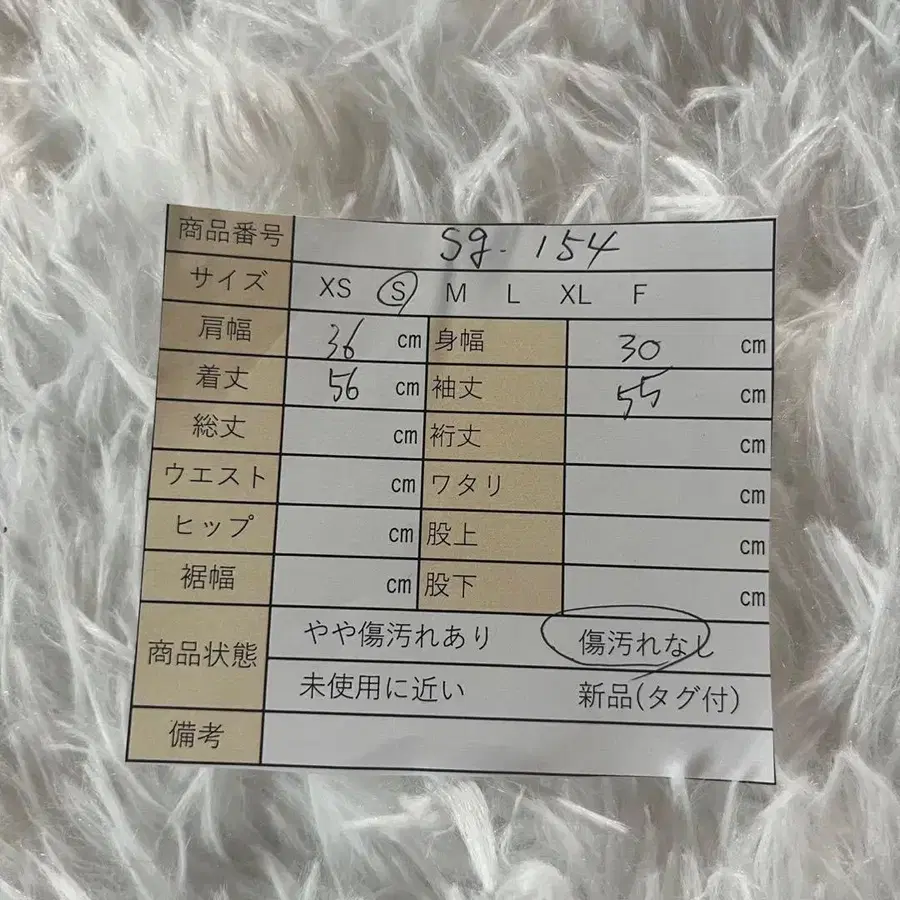 商品番号 Sg-154
サイズ XS S M L XL F
肩幅 36 cm 身幅 30 cm
着丈 56 cm 袖丈 55 cm
総丈 cm 裄丈 cm
ウエスト cm ワタリ cm
ヒップ cm 股上 cm
裾幅 cm 股下 cm
商品状態 やや傷汚れあり 傷汚れなし
未使用に近い 新品(タグ付)
備考